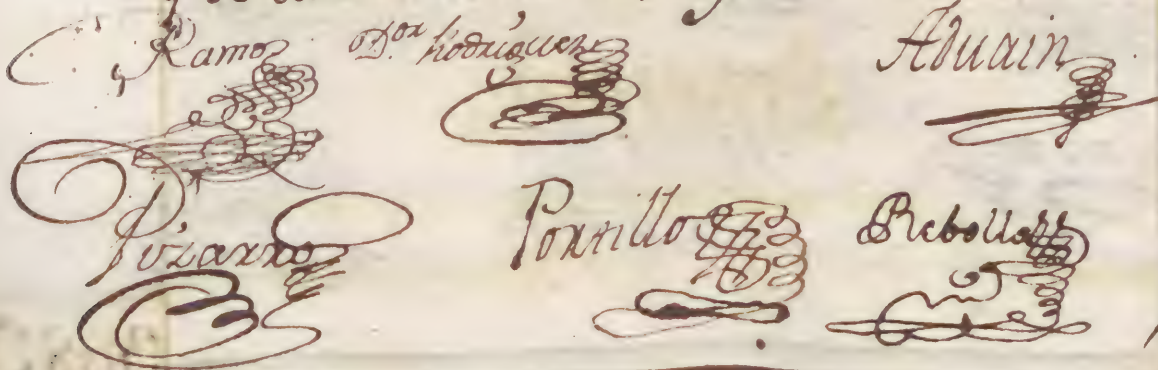 Ramos Dor. Rodriguez Aduain
Pizarro Portillo Rebollar